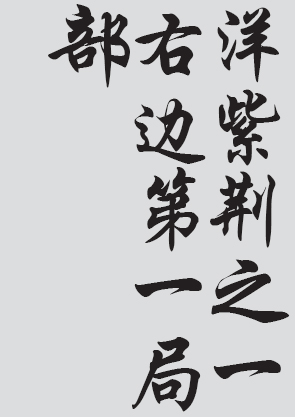 洋紫荆之一
右边第一局
部